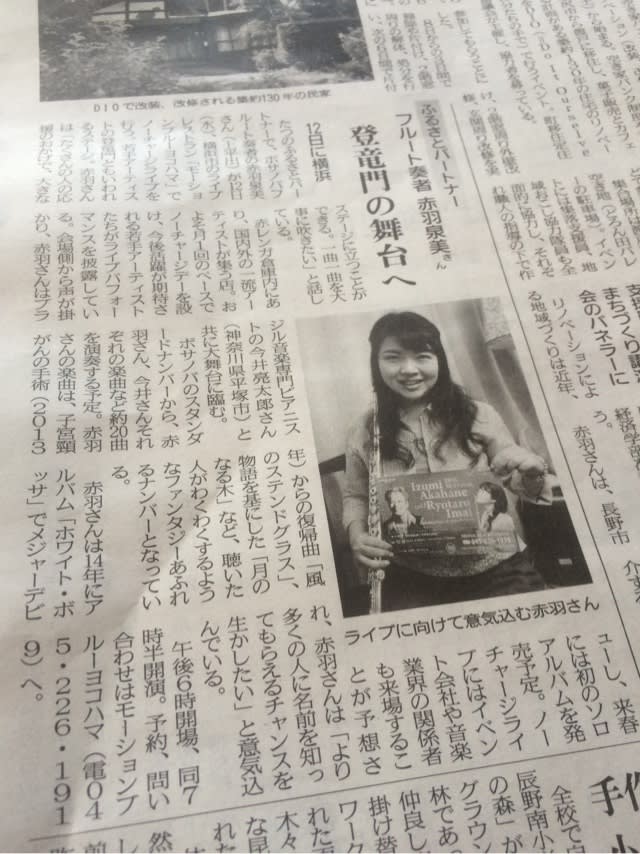 DIOで改装、改修される築約130年の民家
ふるさとパートナー
フルート奏者 赤羽泉美さん
登竜門の舞台へ
12日に横浜
たつのふるさとパー
トナーで、ボサノバフ
ルート奏者の赤羽泉美
さん(上平出)が12日
(木)、横浜市のライブ
レストラン「モーショ
ンブルーヨコハマ」で
ノーチャージライブを
行う。若手アーティス
トの登竜門ともいわれ
るステージ。赤羽さん
は「たくさんの人の応
援のおかげで、大きな
ステージに立つことが
できる。一曲一曲を大
事に吹きたい」と話し
ている。
赤レンガ倉庫内にあ
り、国内外の一流アー
ティストが集う店。お
よそ月1回のペースで
ノーチャージデーを設
け、今後活躍が期待さ
れる若手アーティスト
たちがライブパフォー
マンスを披露してい
る。会場側から声が掛
かり、赤羽さんはブラ
ジル音楽専門ピアニス
トの今井亮太郎さん
(神奈川県平塚市)と
共に大舞台に臨む。
ボサノバのスタンダ
ードナンバーから、赤
羽さん、今井さんそれ
ぞれの楽曲など約20曲
を演奏する予定。赤羽
さんの楽曲は、子宮頸
がんの手術(2013
年)からの復帰曲「風
のステンドグラス」、
物語を基にした「月の
なる木」など、聴いた
人がわくわくするよう
なファンタジーあふれ
るナンバーとなってい
る。
赤羽さんは14年にア
ルバム「ホワイト・ボ
ッサ」でメジャーデビ
ューし、来春
には初のソロ
アルバムを発
売予定。ノー
チャージライ
ブにはイベン
ト会社や音楽
業界の関係者
も来場するこ
とが予想さ
れ、赤羽さんは「より
多くの人に名前を知っ
てもらえるチャンスを
生かしたい」と意気込
んでいる。
午後6時開場、同7
時半開演。予約、問い
合わせはモーションブ
ルーヨコハマ(電04
5・226・191
9)へ。
Izumi
Akahane
Ryotaro
Imai
ライブに向けて意気込む赤羽さん
まちづくり
会のパネラーに
リノベーションによ
る地域づくりは近年、
経済学部
う。
赤羽さんは、長野市
全校で
辰野南小
の森」が
グラウン
林であっ
仲良し
掛け替
ワーク
れた
木々
な昆
れた
手作
小